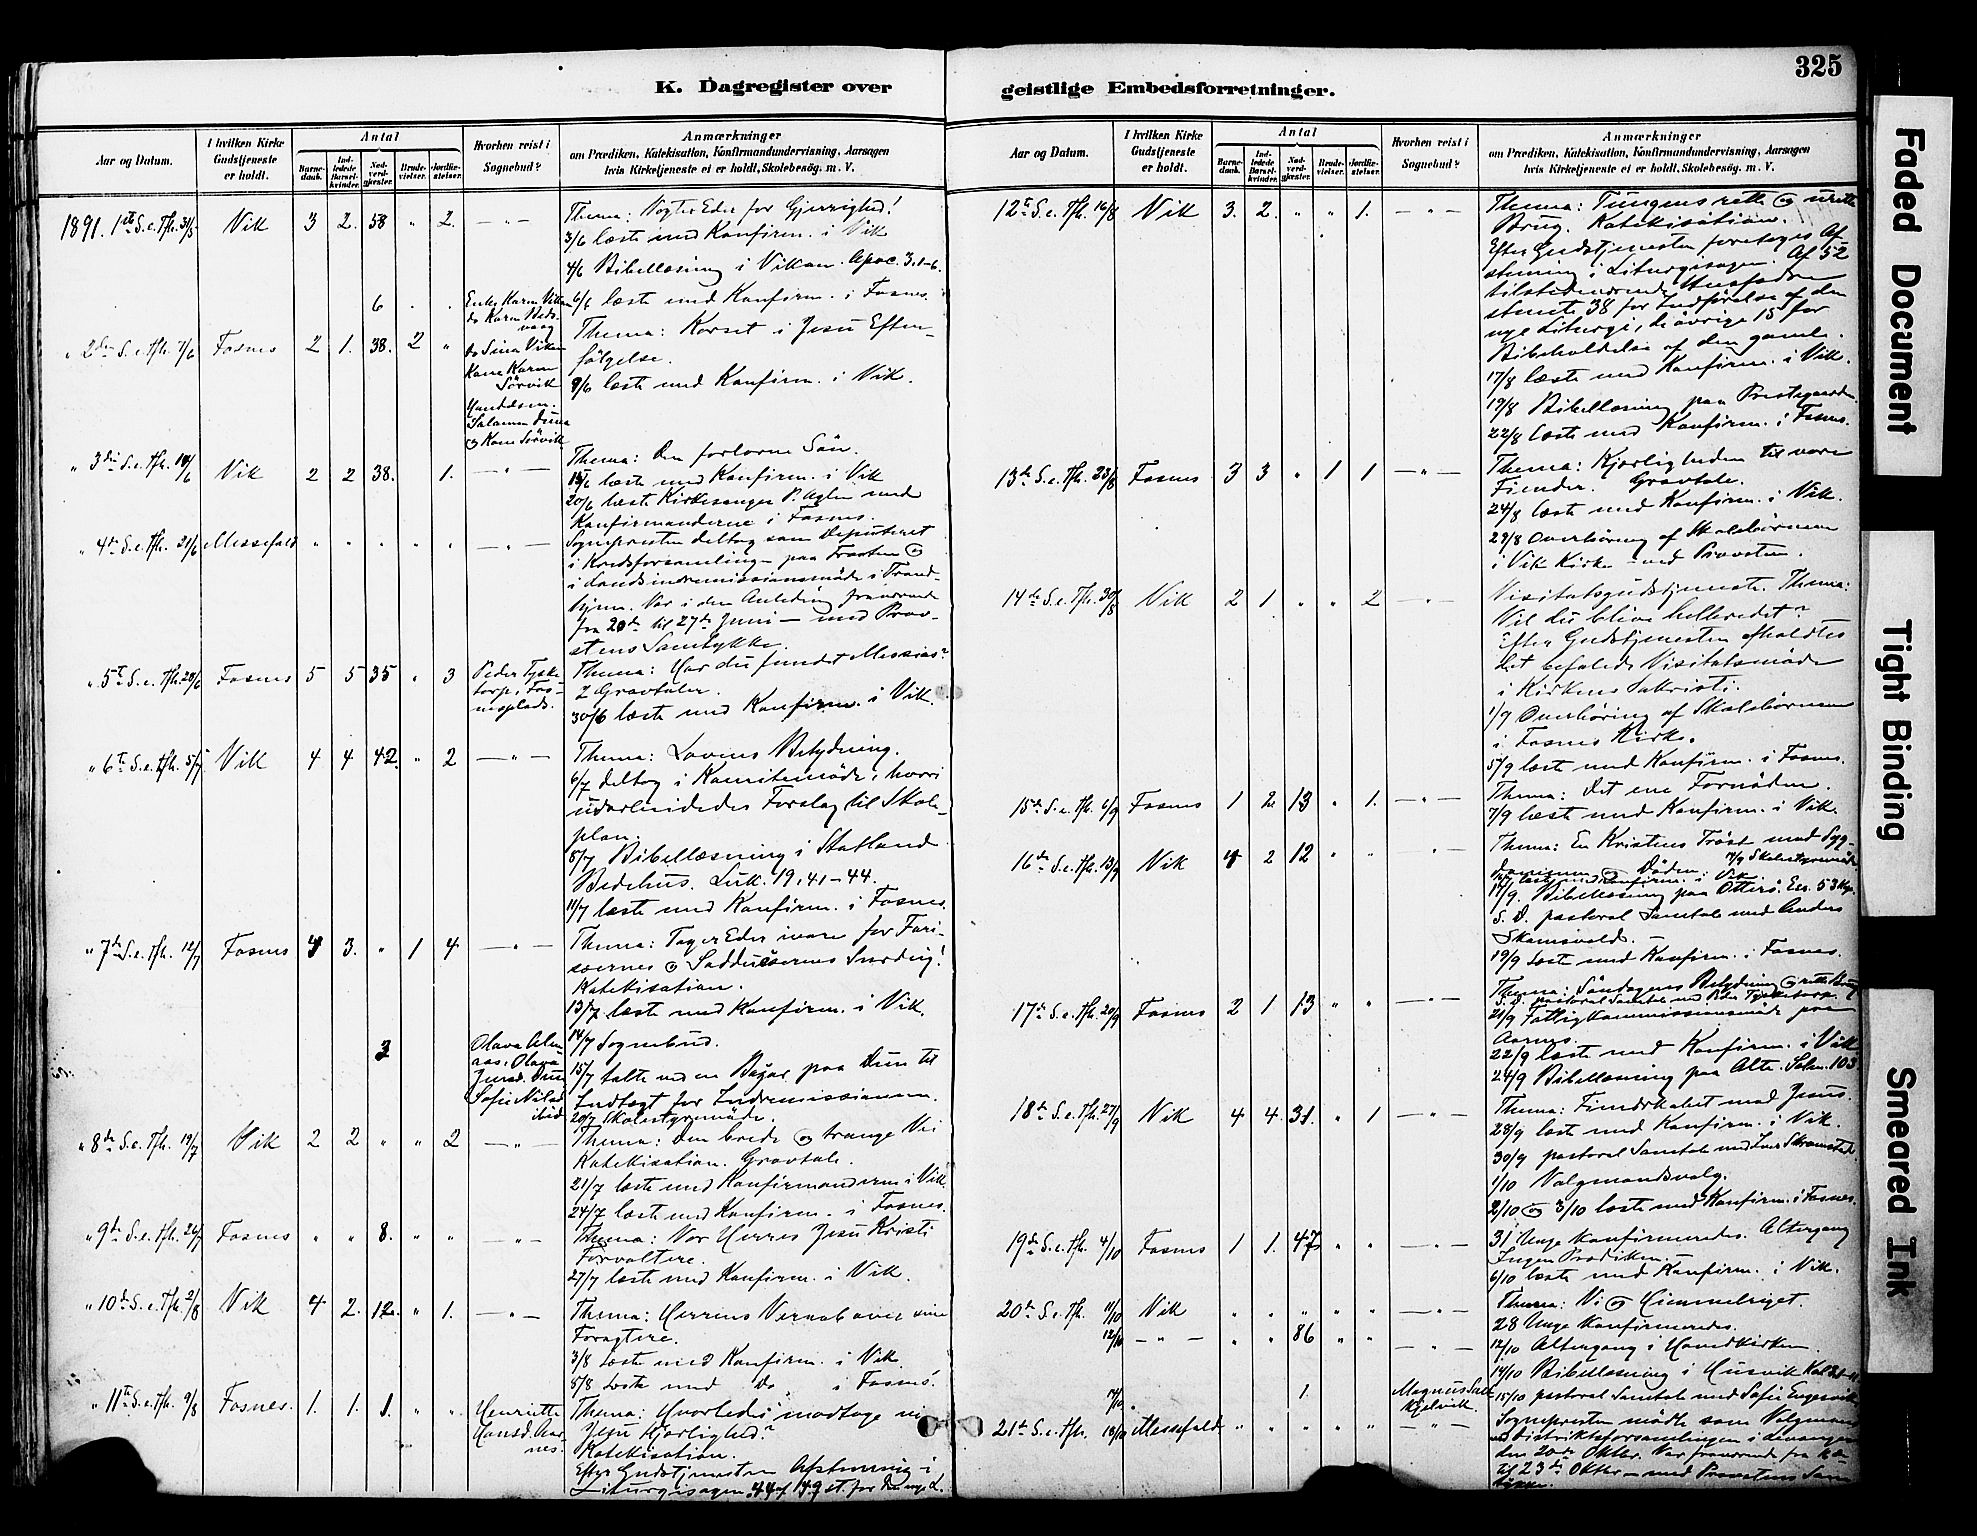 K. Dagregister over
geistlige Embedsforretninger.
325
Aar og Datum.
I hvilken Kirke Gudstjeneste er holdt.
Antal
Barnedaab.
Indledede Barselkvinder.
Nadverdgjæster.
Brudevielser.
Jordfæstelser.
Hvorhen reist i Sognebud?
Anmærkninger
om Prædiken, Katekisation, Konfirmandundervisning, Aarsagen
hvis Kirketjeneste ei er holdt, Skolebesøg. m. V.
1891. 1ste S. e. Tfh. 31/5 Vik 3 2. 58 " 2. — " —
Thema: Vogter Eder for Gjerrighed!
3/6 læste med Konfirm. i Vik
4/6 Bibellæsning i Vikan. Apoc. 3.1-6.
6/6 læste med Konfirm. i Fosnes.
" 2den S. e. Tfh. 7/6 Fosnes 2 1. 38. 2 "
Thema: Korset i Jesu Efter-
følgelse.
9/6 læste med Konfirm. i Vik.
" 3die S. e. Tfh. 14/6 Vik 2 2 38. 1. — " —
Thema: Den forlorne Søn.
læste med Konfirm. i Vik
20/6 læste Kirkesanger P. Aglen med
Konfirmanderne i Fosnes.
" 4de S. e. Tfh. 21/6 Messefald " " " " " — " —
Sognepresten deltog som Deputeret
i Kredsforsamling paa Frosten og
i Landsindremissionsmøde i Trond-
hjem. Var i den Anledning fraværende
fra 20de til 27de Juni — med Prov-
stens Samtykke.
" 5te S. e. Tfh. 28/6 Fosnes 5 5 35 " 3
Thema: Har du fundet Messias?
2 Gravtaler.
30/6 læste med Konfirm. i Vik.
" 6te S. e. Tfh. 5/7 Vik 4 4 42. " 2 — " —
Thema: Lovens Betydning.
6/7 deltog i Komitemøde, hvori
udarbeidedes Forslag til Skole-
plan.
8/7 Bibellæsning i Statland
Bedehus. Luk. 19, 41-44.
11/7 læste med Konfirm. i Fosnes.
" 7de S. e. Tfh. 12/7 Fosnes 4 3. " 1 4 — " —
Thema: Tager Eder ivare for Fari-
sæernes og Saddusæernes Surdeig!
Katekisation.
13/7 læste med Konfirm. i Vik.
14/7 Sognebud.
15/7 talte ved en Bazar paa Dun til
Indtægt for Indremissionen.
20/7 Skolestyremøde.
" 8de S. e. Tfh. 19/7 Vik 2 2 " " 2 — " —
Thema: Den brede og trange Vei
Katekisation. Gravtale.
21/7 læste med Konfirmanderne i Vik.
24/7 læste med Konfirm. i Fosnes.
" 9de S. e. Tfh. 26/7 Fosnes " " 8. " " — " —
Thema: Vor Herres Jesu Kristi
Forvaltere.
27/7 læste med Konfirm. i Vik.
" 10de S. e. Tfh. 2/8 Vik 4 2. 12. " 1. — " —
Thema: Herrens Veraab over sine
Foragtere.
3/8 læste med Konfirm. i Vik
5/8 læste med Do i Fosnes.
" 11te S. e. Tfh. 9/8 Fosnes. 1. 1. 1. " "
Thema: Hvorledes modtage vi
Jesu Kjærlighed?
Katekisation.
Efter Gudstjenesten Afstemning i
Liturgisagen.
Aar og Datum.
I hvilken Kirke Gudstjeneste er holdt.
Antal
Barnedaab.
Indledede Barselkvinder.
Nadverdgjæster.
Brudevielser.
Jordfæstelser.
Hvorhen reist i Sognebud?
Anmærkninger
om Prædiken, Katekisation, Konfirmandundervisning, Aarsagen
hvis Kirketjeneste ei er holdt, Skolebesøg. m. V.
12te S. e. Tfh. 16/8 Vik 3. 2. " " 1. — " —
Thema: Tungens rette og urette
Brug. Katekisation.
Efter Gudstjenesten foretoges Af-
stemning i Liturgisagen. Af 52
tilstedeværende Husfædre
stemte 38 for Indførelse af den
nye Liturgi, de øvrige 15 for
Bibeholdelse af den gamle.
17/8 læste med Konfirm. i Vik.
19/8 Bibellæsning paa Prestegaarden
22/8 læste med Konfirm. i Fosnes.
13de S. e. Tfh. 23/8 Fosnes 3 3 " 1 1 — " —
Thema: Kjærligheden til vore
Fiender. Gravtale.
24/8 læste med Konfirm. i Vik.
29/8 Overhøring af Skolebørnene
i Vik Kirke ved Provsten.
14de S. e. Tfh. 30/8 Vik 2 1 " " 2 — " —
Visitatsgudstjeneste. Thema:
Vil du blive helbredet?
Efter Gudstjenesten afholdtes
det befalede Visitatsmøde
i Kirkens Sakristi.
1/9 Overhøring af Skolebørnene
i Fosnes Kirke.
5/9 læste med Konfirm. i Fosnes.
15de S. e. Tfh. 6/9 Fosnes 1 2 13 " 1. — " —
Thema: Det ene Fornødne.
7/9 læste med Konfirm. i Vik.
16de S. e. Tfh. 13/9 Vik 4 2 12 " " "
Thema: En Kristens Trøst mod Syg-
dommen og Døden.
Bibellæsning paa Otterø.
S. D. pastoral Samtale med Anders
19/9 læste med Konfirm. i Fosnes.
17de S. e. Tfh. 20/9 Fosnes 2 1 13 " " — " —
Thema: Søndagens Betydning og rette Brug
21/9 Fattigkommissionsmøde paa
22/9 læste med Konfirm. i Vik
24/9 Bibellæsning paa Alte. Salm. 103
18de S. e. Tfh. 27/9 Vik 4 4. 31. " 1 — " —
Thema: Fiendskabet mod Jesus.
28/9 læste med Konfirm. i Vik.
30/9 pastoral Samtale med
1/10 Valgmandsvalg.
2/10 og 3/10 læste med Konfirm. i Fosnes.
19de S. e. Tfh. 4/10 Fosnes 1 1. 47 " " — " —
31 Unge konfirmeredes. Altergang
Ingen Prædiken.
6/10 læste med Konfirm. i Vik.
20de S. e. Tfh. 11/10 Vik " " " " " — " —
Thema: Vi og Himmelriget.
28 Unge konfirmeredes.
12/10 — " — " " 86 " "
12/10 Altergang i Hovedkirken.
14/10 Bibellæsning i Husvik
15/10 pastoral Samtale med Sofie
21de S. e. Tfh. 18/10 Messefald " " " " " — " —
Sognepresten mødte som Valgmand
ved Distriktsforsamlingen i Levanger
den 20de Oktbr. Var fraværende fra
til 23de Oktbr — med Provstens Sam-
tykke.
Faded Document
Tight Binding
Smeared Ink